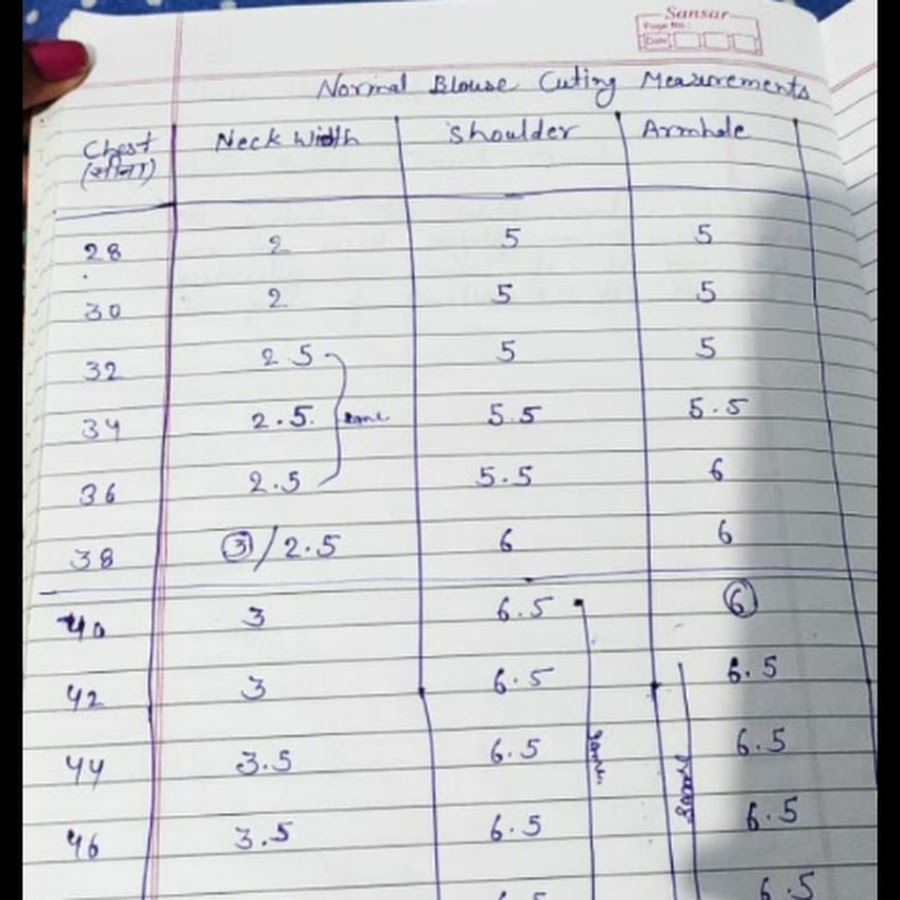 Sansar
Page No.:
Date
Normal Blouse Cuting Measurements
Chest Neck Width Shoulder Armhole
(सीना)
28 2 5 5
30 2 5 5
32 2 5 5 5
34 2.5. same 5.5 5.5
36 2.5 5.5 6
38 3 / 2.5 6 6
40 3 6.5 6
42 3 6.5 6.5
44 3.5 6.5 same 6.5
46 3.5 6.5 6.5
6.5 6.5